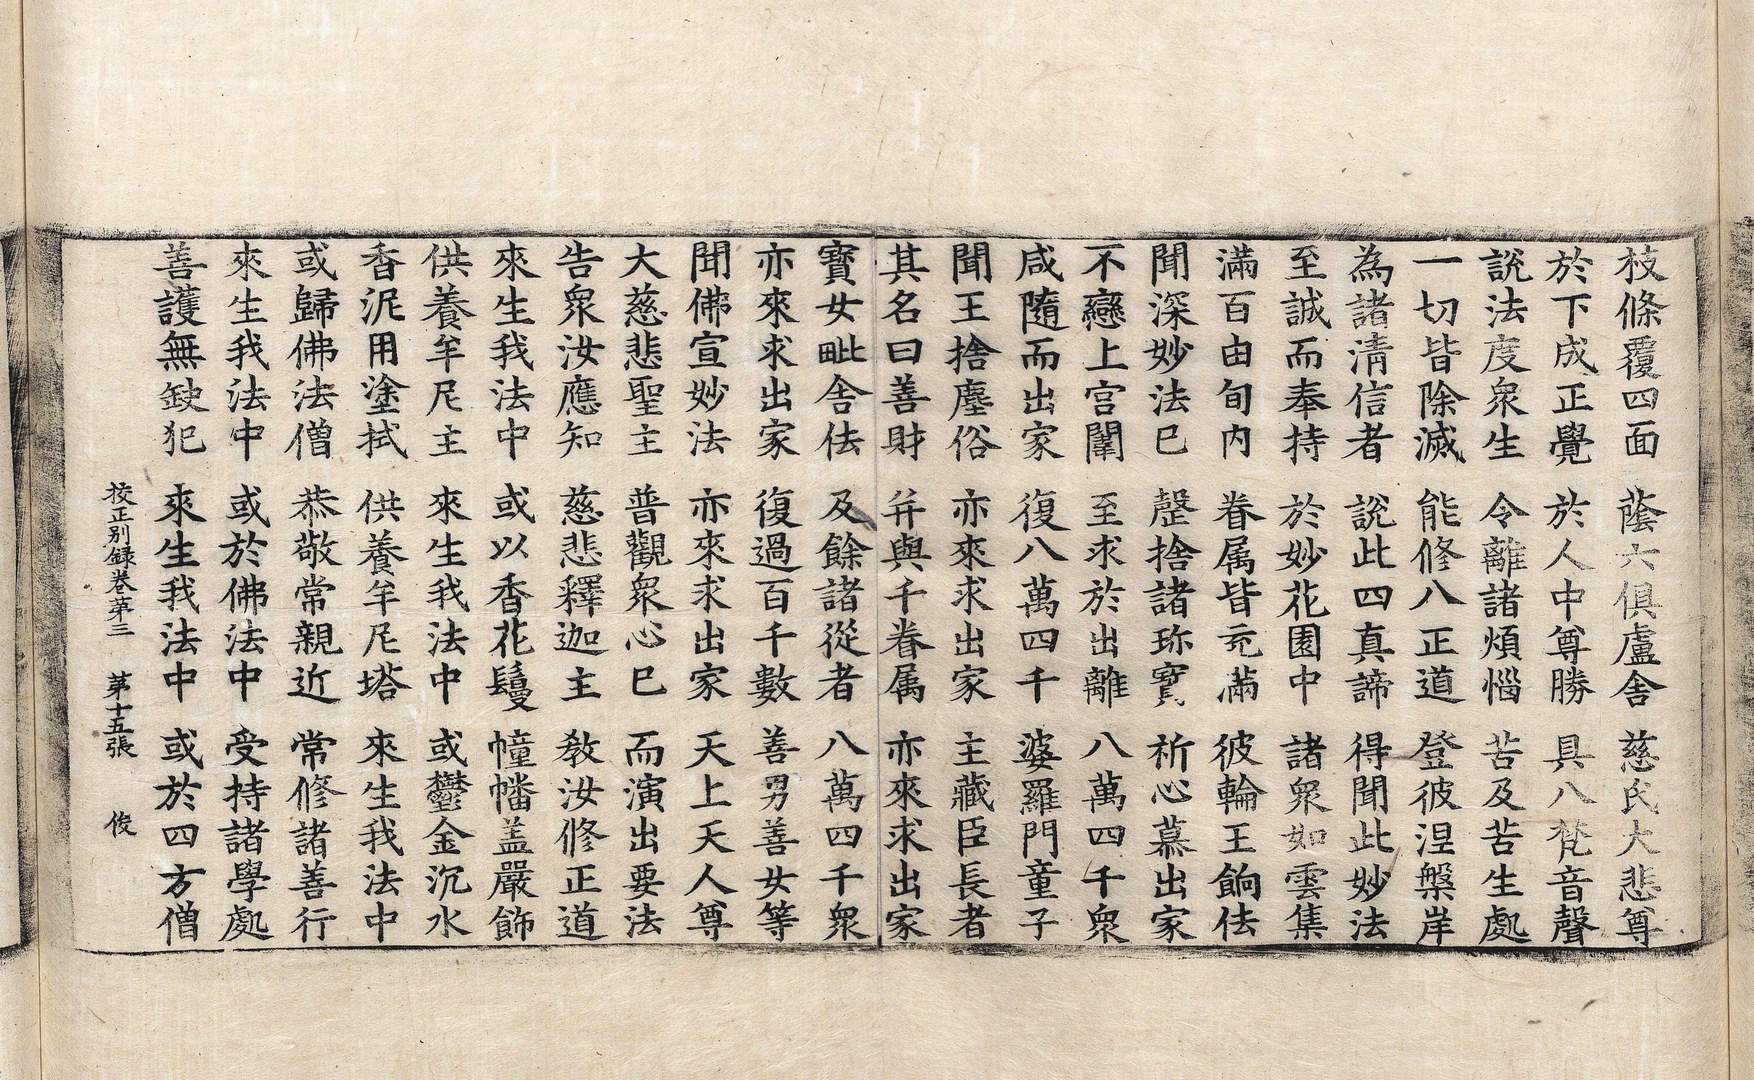 枝條覆四面　蔭六俱盧舍　慈氏大悲尊
於下成正覺　於人中尊勝　具八梵音聲
說法度衆生　令離諸煩惱　苦及苦生處
一切皆除滅　能修八正道　登彼涅槃岸
為諸淸信者　說此四真諦　得聞此妙法
至誠而奉持　於妙花園中　諸衆如雲集
滿百由旬內　眷属皆充滿　彼輪王餉佉
聞深妙法已　罄捨諸珎寶　祈心慕出家
不戀上宮闈　至求於出離　八萬四千衆
咸隨而出家　復八萬四千　婆羅門童子
聞王捨塵俗　亦來求出家　主藏臣長者
其名曰善財　幷與千眷属　亦來求出家
寶女毗舍佉　及餘諸從者　八萬四千衆
亦來求出家　復過百千數　善男善女等
聞佛宣妙法　亦來求出家　天上天人尊
大慈悲聖主　普觀衆心已　而演出要法
告衆汝應知　慈悲釋迦主　敎汝修正道
來生我法中　或以香花鬘　幢幡盖嚴飾
供養牟尼主　來生我法中　或鬱金沉水
香泥用塗拭　供養牟尼塔　來生我法中
或歸佛法僧　恭敬常親近　常修諸善行
來生我法中　或於佛法中　受持諸學處
善護無缺犯　來生我法中　或於四方僧
校正別録卷第三　第十五張　俊